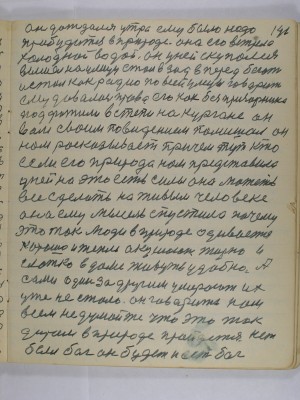 он дождался утра ему было надо 196
прибудется в природе она его встрела
холодной водой. он у ней скупался
вышел на улицу стал в зад в перед бегать
и стал как радио по всей улице говорить
ему давалось право его как бесприговорника
подхватили в степи на кургане он
вам своим поведением помешал он
нам рассказывает причем тут кто
если его природа нам представила
у ней на это есть силы она может
все сделать на живым человеке
она ему мысль спустила почему
это так люди в природе одеваются
хорошо и тепло а кушают жирно и
сладко в доме живуть удобно. А
сами один за другим умирают их
уже не стало. он говорить нам
всем не думайте что это так
думали в природе прийдется нет
были бог он будет и есть бог